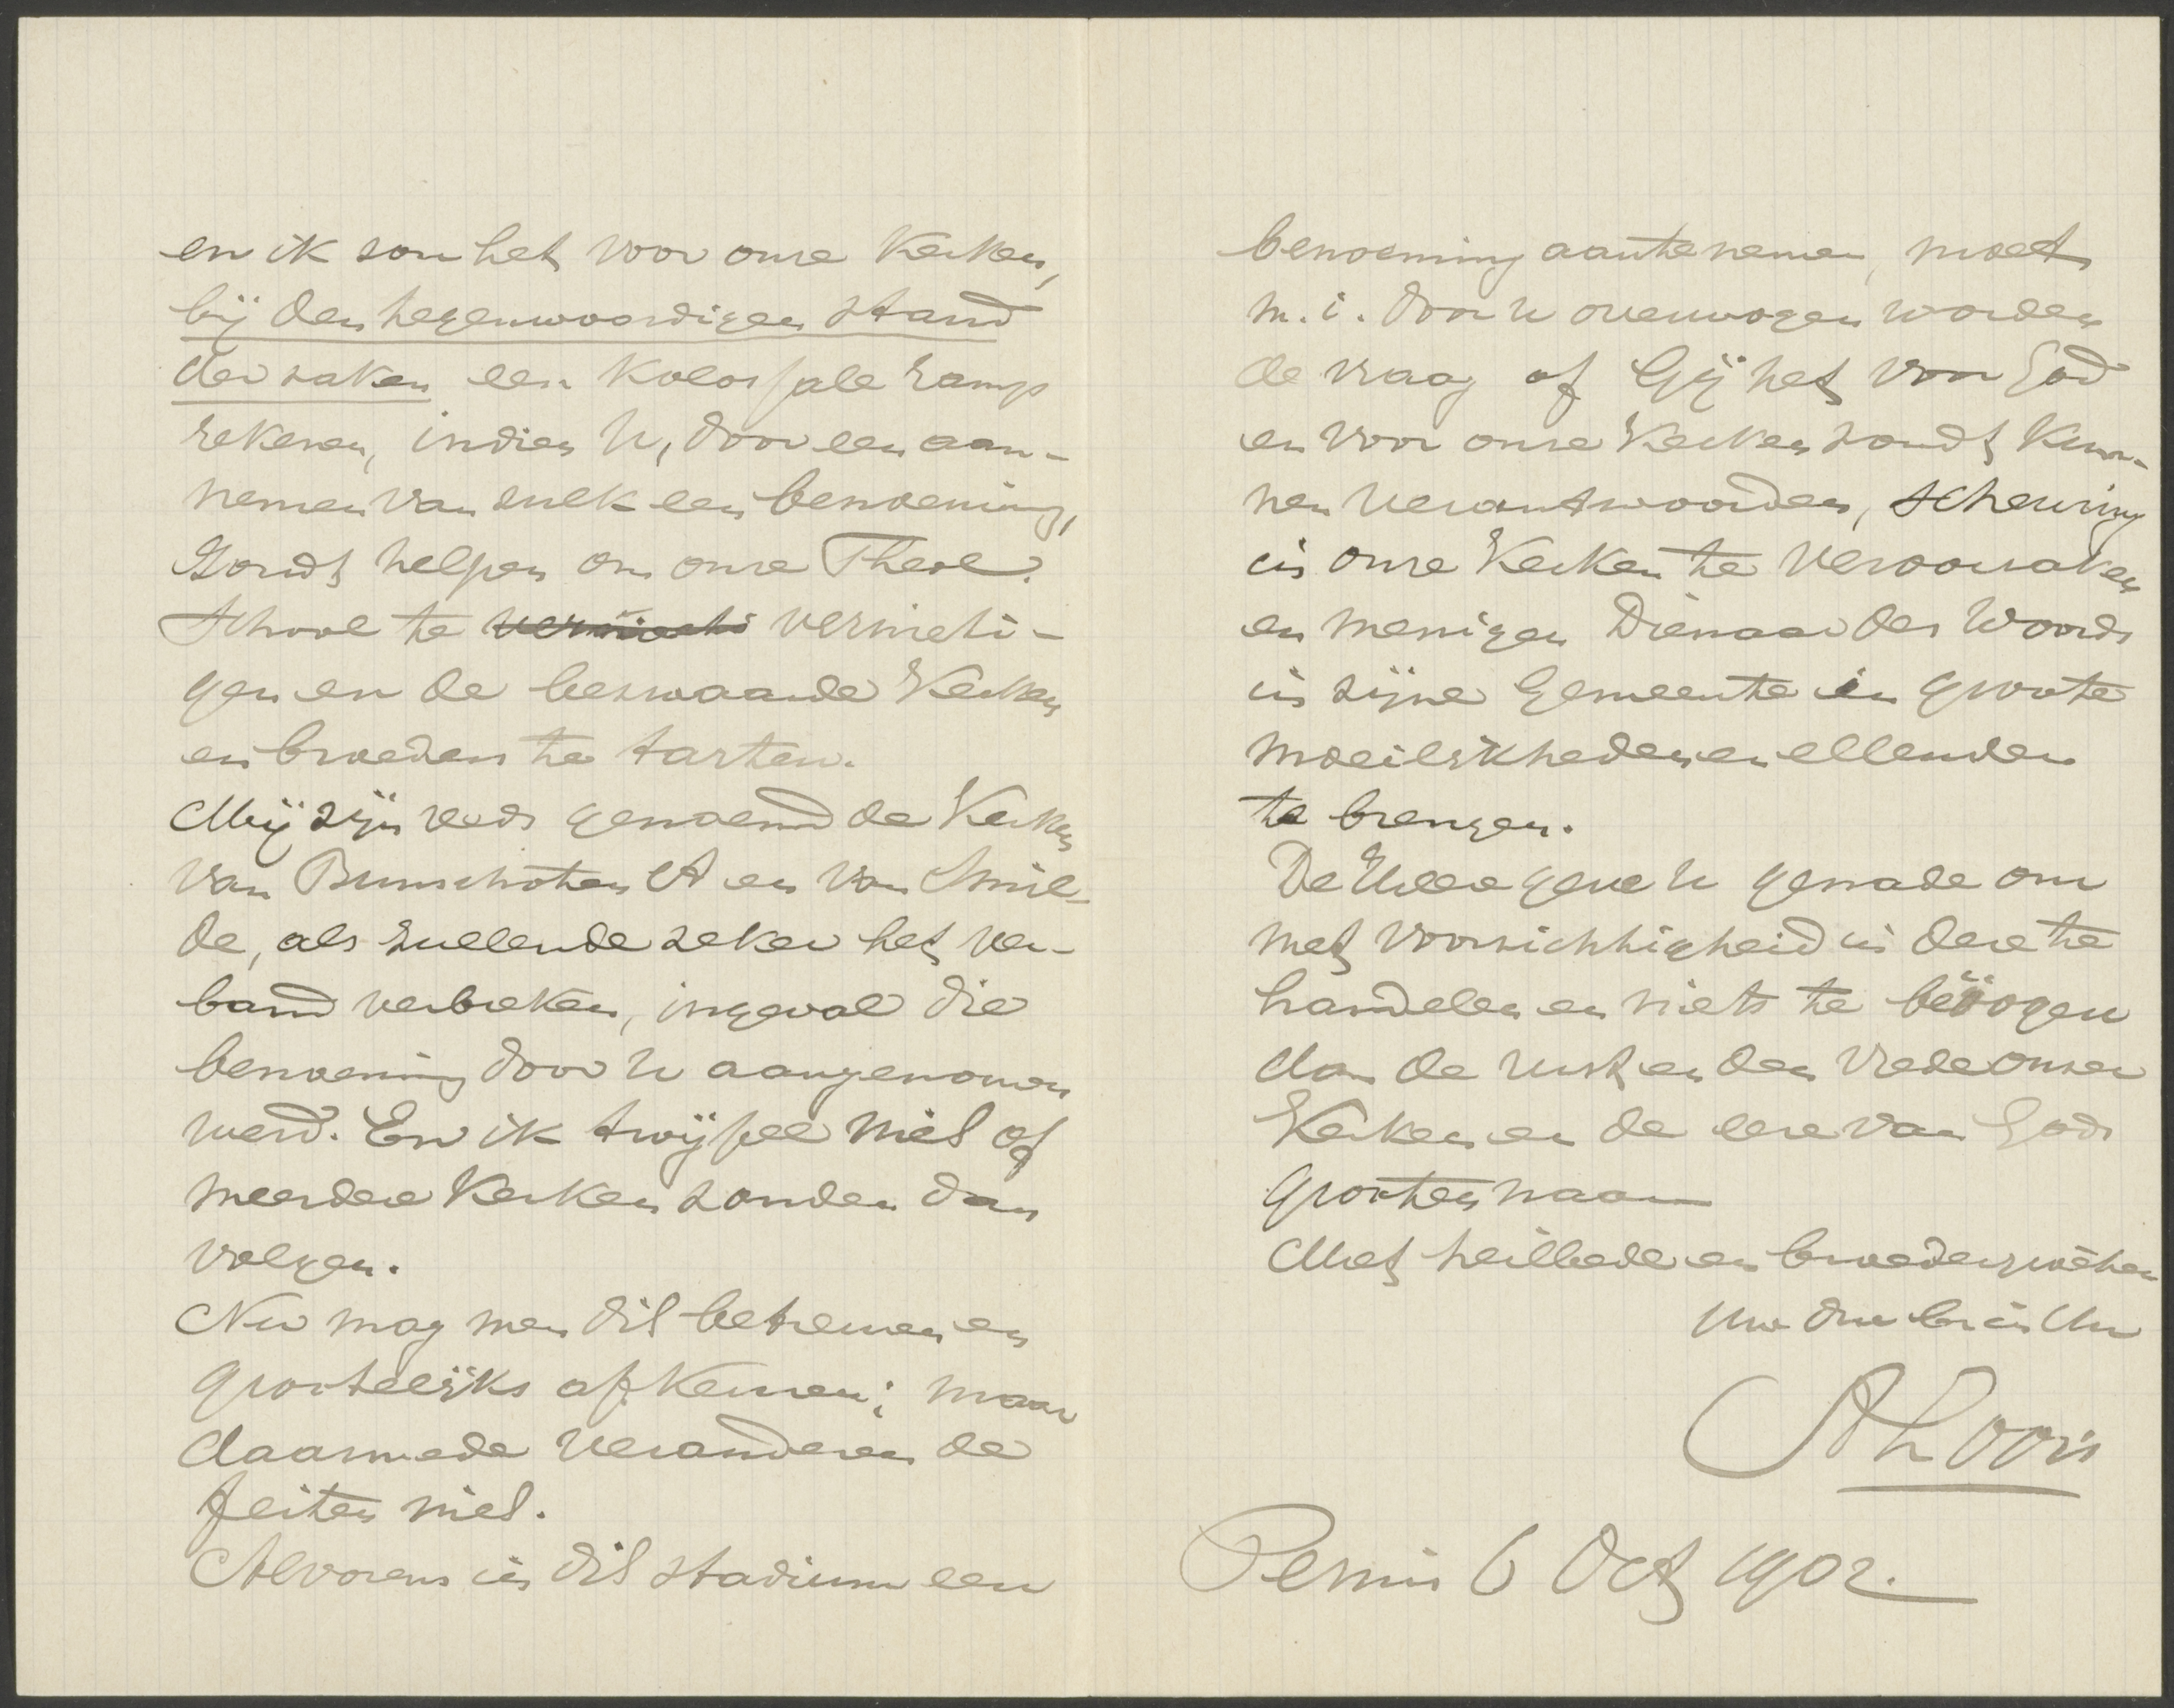 en ik zou het voor onze Kerken,
bij den tegenwoordigen stand
der zaken een kolossale ramp
rekenen, indien U, door een aan-
nemen van zulk een benoeming,
Zoudt helpen om onze Theol.
School te vernieti-
gen en de bezwaarde Kerken
en broeders te tarten.
Mij zijn reeds genoemd de Kerken
van Bunschoten A en van Smil-
de, als zullende zeker het ver-
band verbreken, ingeval die
benoeming door U aangenomen
werd. En ik twijfel niet of
meerdere Kerken zouden dan
volgen.
Nu mag men dit betreuren en
grootelijks afkeuren; maar
daarmede veranderen de
feiten niet.
Alvorens in dit stadium een
benoeming aantenemen, moet
m.i. door U overwogen worden
de vraag of Gij het voor God
en voor onze Kerken zoudt kun-
nen verantwoorden, scheuring
in onze Kerken te veroorzaken
en menigen Dienaar des Woords
in zijne Gemeente in groote
moeilijkheden en ellenden
te brengen.
De Heere geve U genade om
met voorzichtigheid in deze te
handelen en niets te beoogen
dan de rust en den vrede onzer
Kerken en de eere van Gods
grooten naam
Met heilbede en broedergroeten
Uw dw br in Chr
Pernis 6 Oct 1902.